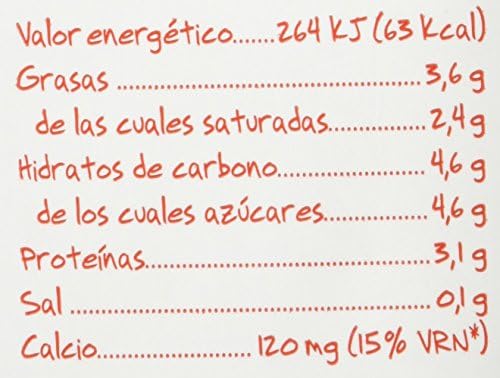 Valor energético.......264 KJ (63 Kcal)
Grasas ........................................3,6 g
de las cuales saturadas...............2,4 g
Hidratos de carbono......................4,6 g
de los cuales azúcares................4,6 g
Proteínas..........................................3,1 g
Sal .....................................................0,1 g
Calcio.......................120 mg (15% VRN*)